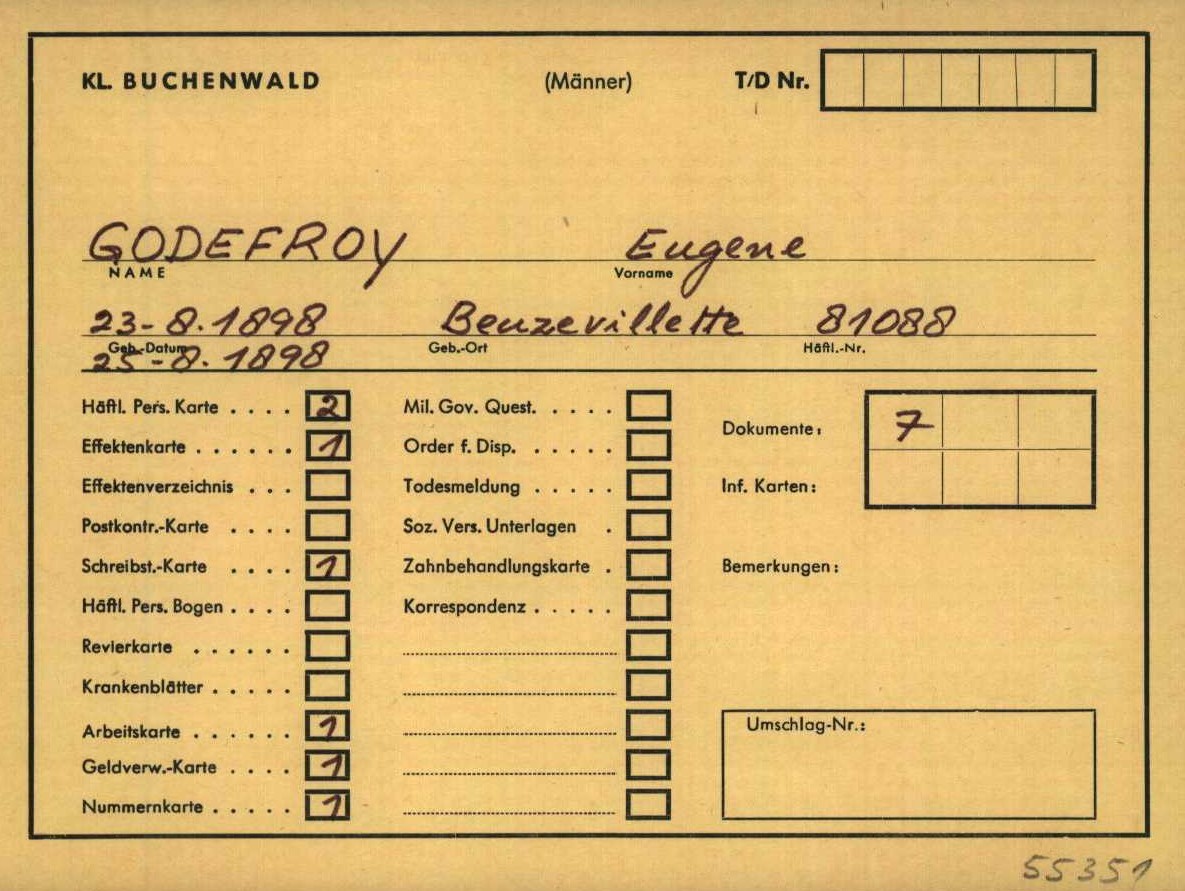 KL. BUCHENWALD (Männer) T/D Nr.
GODEFROY Eugene
NAME Vorname
23-8.1898 Beuzevillette 81088
Geb.-Datum Geb.-Ort Häftl.-Nr.
25-8.1898
Häftl. Pers. Karte . . . . 2 Mil. Gov. Quest. . . . . .
Dokumente: 7
Effektenkarte . . . . . . 1 Order f. Disp. . . . . .
Effektenverzeichnis . . . Todesmeldung . . . . . Inf. Karten:
Postkontr.-Karte . . . . Soz. Vers. Unterlagen .
Schreibst.-Karte . . . . 1 Zahnbehandlungskarte . Bemerkungen:
Häftl. Pers. Bogen . . . . Korrespondenz . . . . .
Revierkarte . . . . . .
Krankenblätter . . . . .
Arbeitskarte . . . . . . 1 Umschlag-Nr.:
Geldverw.-Karte . . . . 1
Nummernkarte . . . . . 1
55351